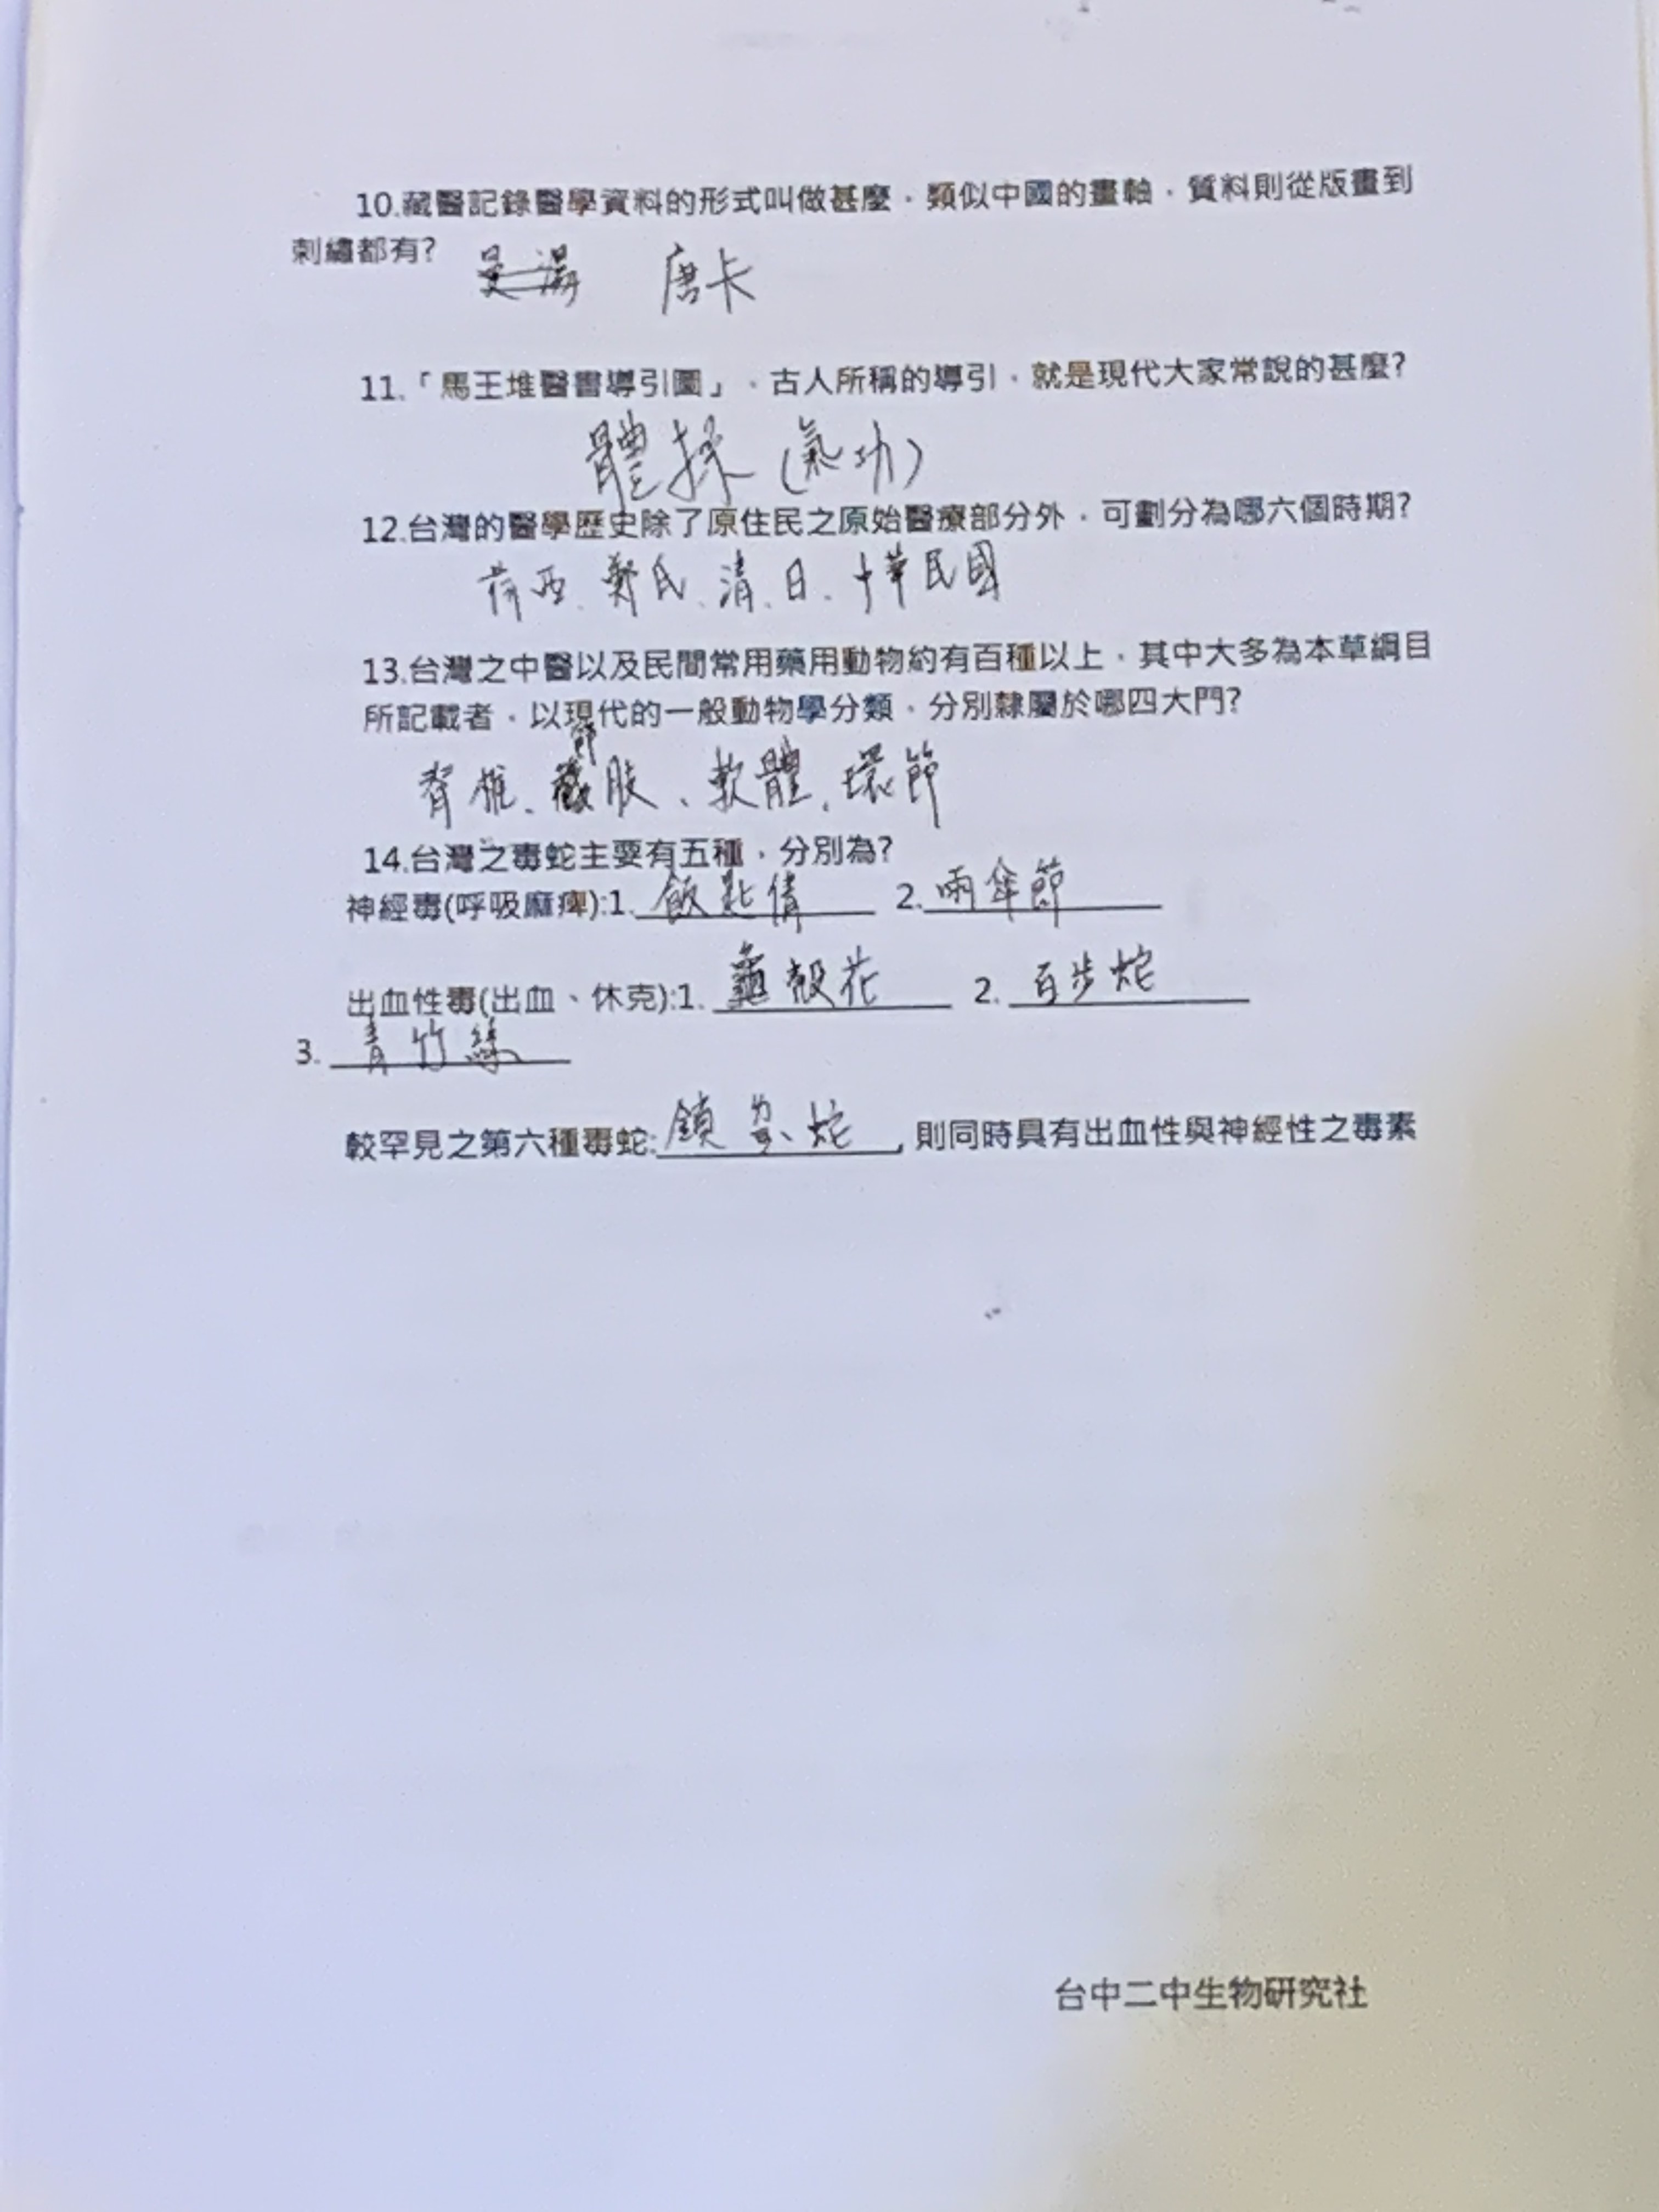 10.藏醫記錄醫學資料的形式叫做甚麼，類似中國的畫軸，質料則從版畫到
刺繡都有?
唐卡
11.「馬王堆醫書導引圖」，古人所稱的導引，就是現代大家常說的甚麼?
體操 (氣功)
12.台灣的醫學歷史除了原住民之原始醫療部分外，可劃分為哪六個時期?
鄭氏、清、日、中華民國
13.台灣之中醫以及民間常用藥用動物約有百種以上，其中大多為本草綱目
所記載者，以現代的一般動物學分類，分別隸屬於哪四大門?
脊椎、節肢、軟體、環節
14.台灣之毒蛇主要有五種，分別為?
神經毒(呼吸麻痺):1. 飯匙倩 2. 雨傘節
出血性毒(出血、休克):1. 龜殼花 2. 百步蛇
3. 青竹絲
較罕見之第六種毒蛇: 鎖ㄌㄧㄢˋ蛇，則同時具有出血性與神經性之毒素
台中二中生物研究社